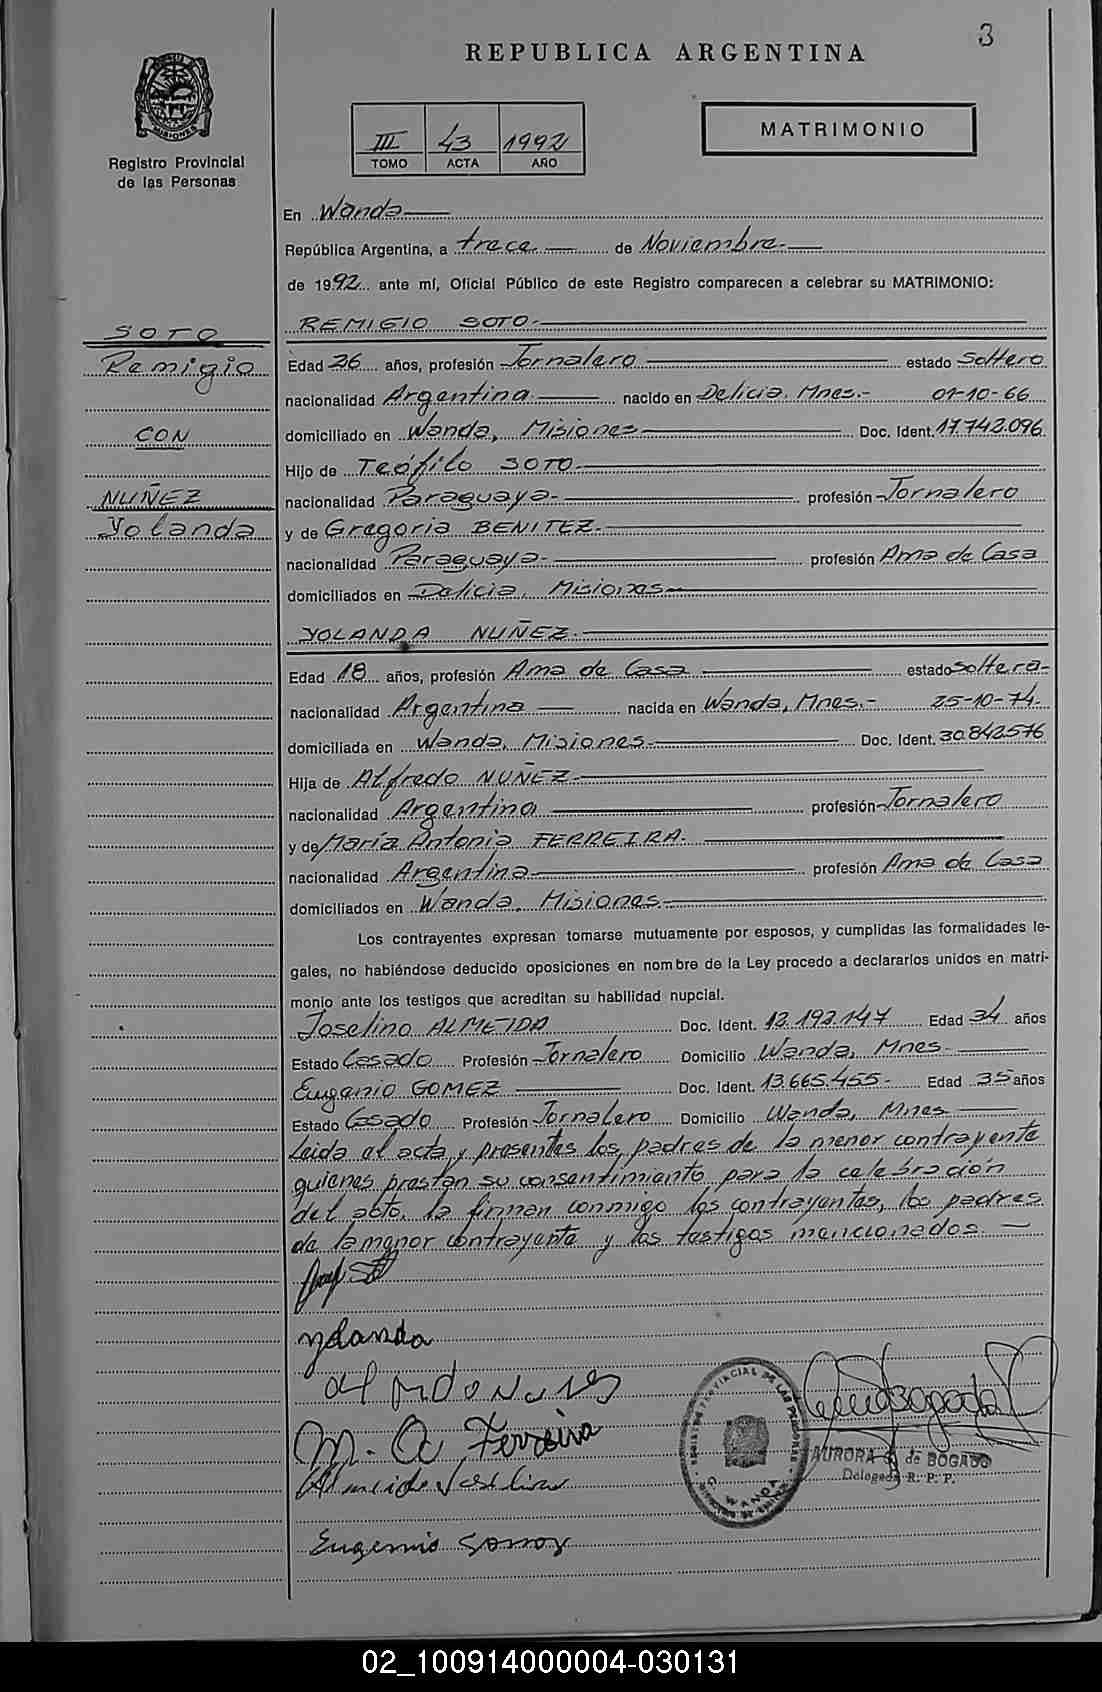 3
REPUBLICA ARGENTINA
MISIONES
Registro Provincial
de las Personas
III 43 1992
TOMO ACTA AÑO
MATRIMONIO
En Wanda
República Argentina, a trece de Noviembre
de 1992 ante mí, Oficial Público de este Registro comparecen a celebrar su MATRIMONIO:
REMIGIO SOTO.
Edad 26 años, profesión Jornalero estado Soltero
nacionalidad Argentina nacido en Delicia, Mnes.- 01-10-66
domiciliado en Wanda, Misiones Doc. Ident. 17.742.096.
Hijo de Teófilo SOTO.
nacionalidad Paraguaya profesión Jornalero
y de Gregoria BENITEZ.
nacionalidad Paraguaya profesión Ama de Casa
domiciliados en Delicia, Misiones
YOLANDA NUÑEZ.
Edad 18 años, profesión Ama de Casa estado soltera
nacionalidad Argentina nacida en Wanda, Mnes.- 25-10-74.
domiciliada en Wanda, Misiones Doc. Ident. 30.842576
Hija de Alfredo NUÑEZ
nacionalidad Argentina profesión Jornalero
y de María Antonia FERREIRA.
nacionalidad Argentina profesión Ama de Casa
domiciliados en Wanda, Misiones
Los contrayentes expresan tomarse mutuamente por esposos, y cumplidas las formalidades le-
gales, no habiéndose deducido oposiciones en nombre de la Ley procedo a declararlos unidos en matri-
monio ante los testigos que acreditan su habilidad nupcial.
Joselino ALMEIDA Doc. Ident. 12.192.147 Edad 34 años
Estado Casado Profesión Jornalero Domicilio Wanda, Mnes
Eugenio GOMEZ Doc. Ident. 13.665.455 Edad 35 años
Estado Casado Profesión Jornalero Domicilio Wanda, Mnes
Leida el acta y presentes los padres de la menor contrayente
quienes prestan su consentimiento para la celebración
del acto, la firman conmigo los contrayentes, los padres
de la menor contrayente y los testigos mencionados.
SOTO
Remigio
CON
NUÑEZ
Yolanda
yolanda
M. A Ferreira
Eugenio
REGISTRO PROVINCIAL DE LAS PERSONAS
WANDA
AURORA de BOGADO
Delegada R. P. P.
02_100914000004-030131